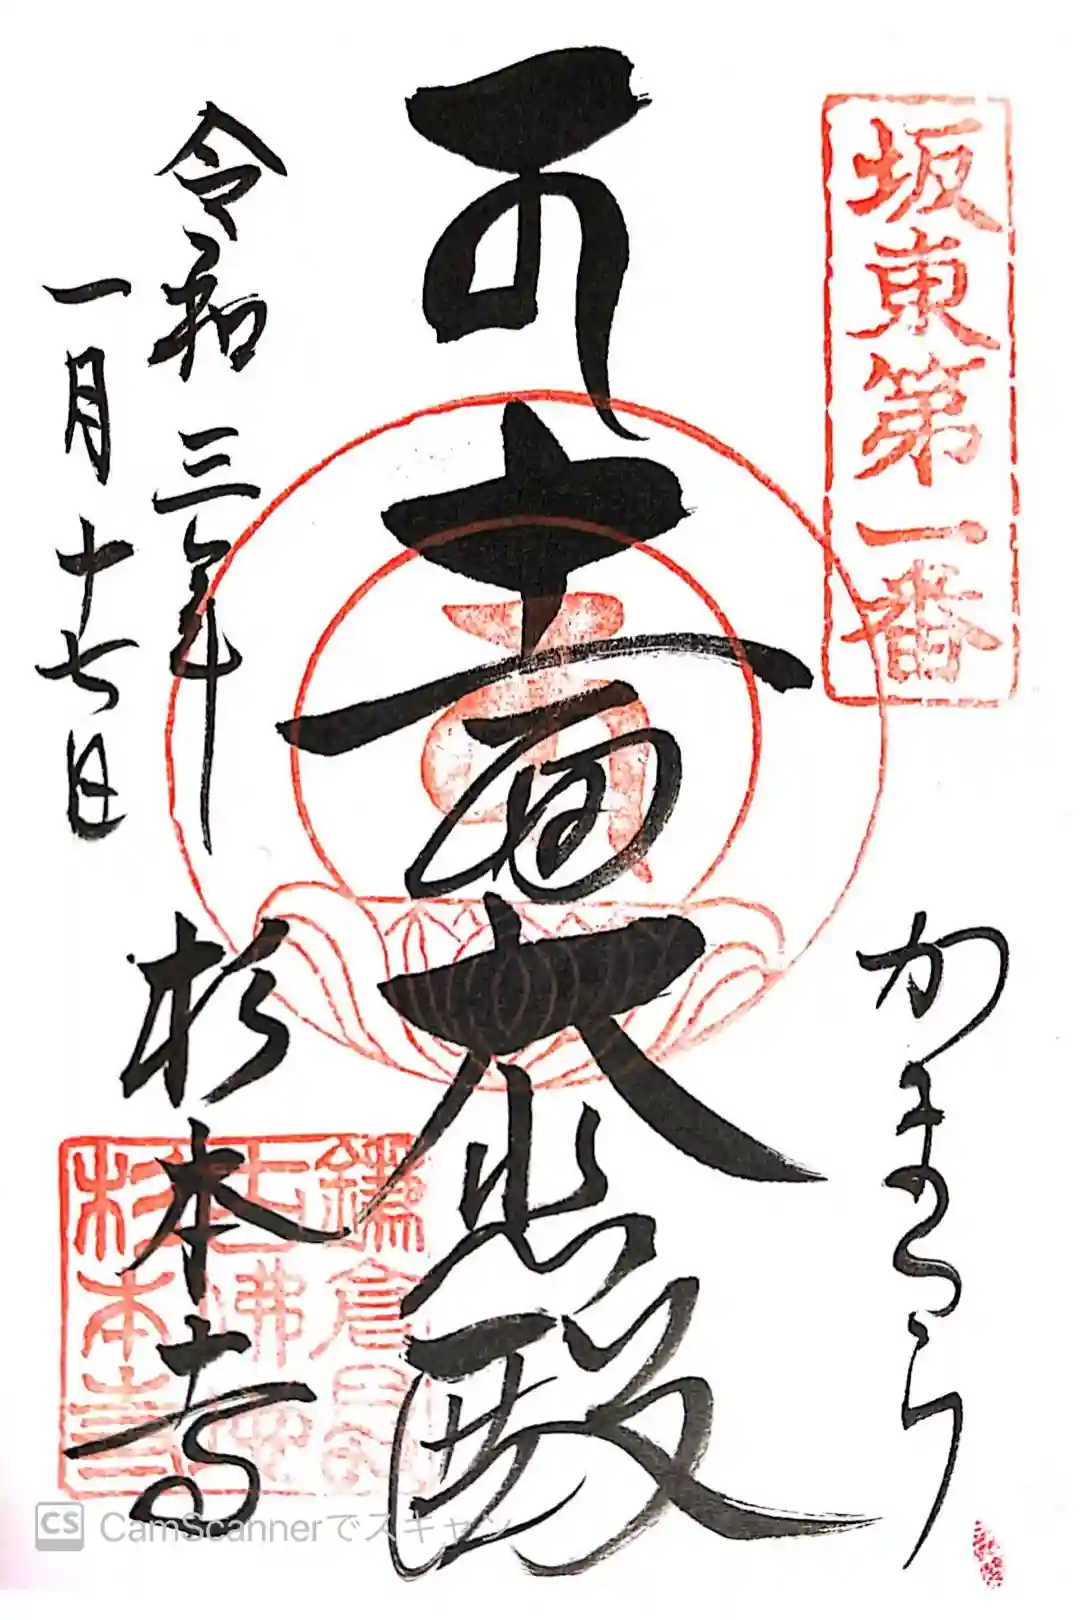 坂東第一番
かまくら
十一面大悲殿
令和三年
一月十七日
杉本寺
杉本寺
CS CamScannerでスキャン